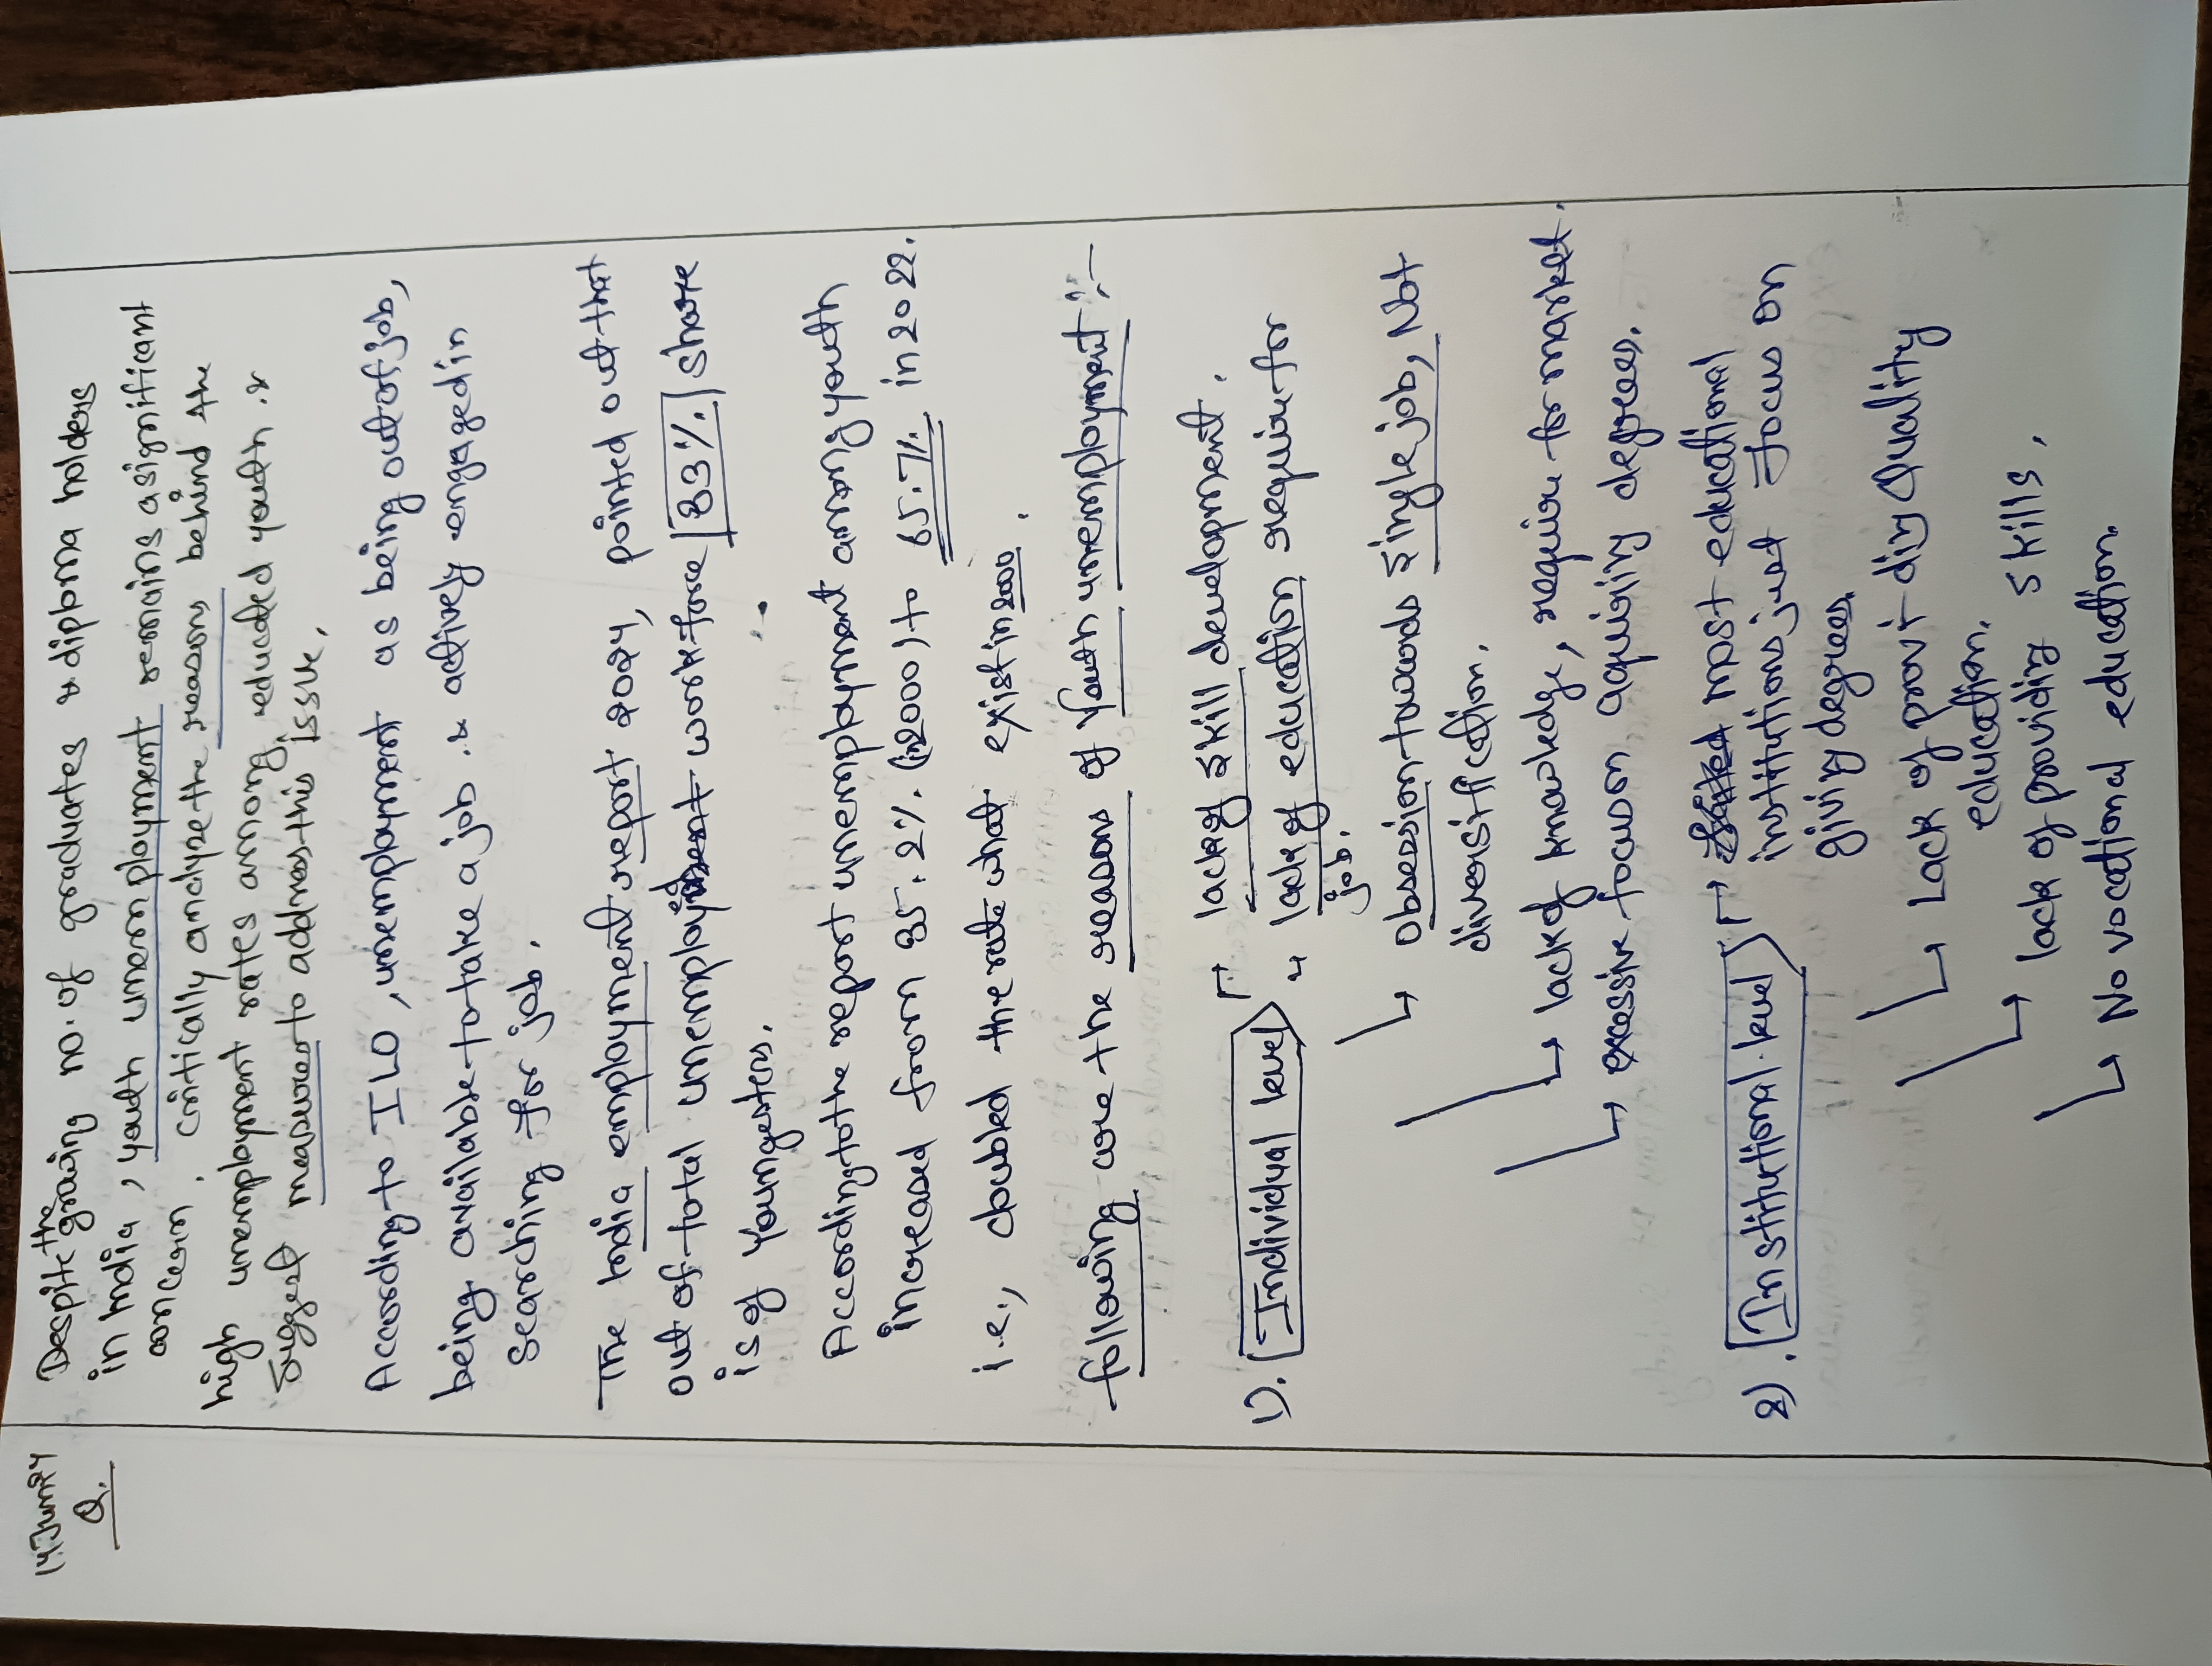 14 Jun 24
Q.
Despite the growing no. of graduates & diploma holders
in India, youth unemployment remains a significant
concern. Critically analyse the reasons behind the
high unemployment rates among educated youth . &
suggest measures to address this issue.
According to ILO, unemployment as being out of job,
being available to take a job . & actively engaged in
searching for job.
The India employment report 2024, pointed out that
out of total unemployed work force 83%. share
is of youngsters.
According to the report unemployment among youth
increased from 35.2%. (in 2000) to 65.7%. in 2022.
i.e., doubled the rate what exist in 2000.
following are the reasons of Youth unemployment :-
1). Individual level → lack of skill development.
→ lack of education require for
job.
→ obsession towards single job, Not
diversification.
→ lack of knowledge, require for market.
→ excessive focus on aquiring degrees.
2). Institutional level → most educational
institutions just focus on
giving degrees.
→ Lack of provi-ding Quality
education.
→ lack of providing skills.
→ No vocational education.